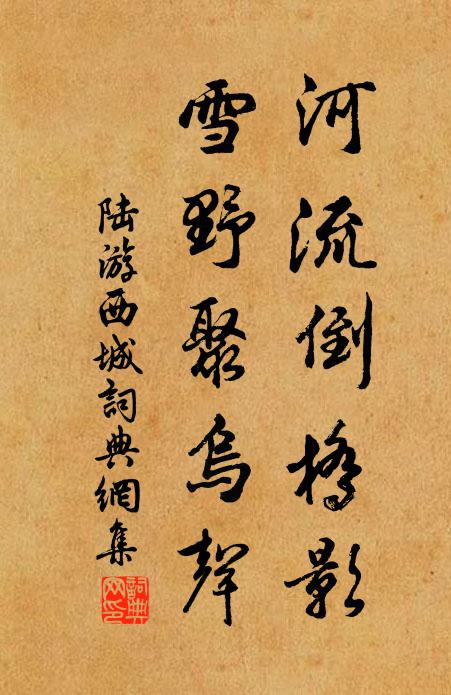 河流倒橋影
雪野聚烏聲
陆游西城詞典網集
詞典網印